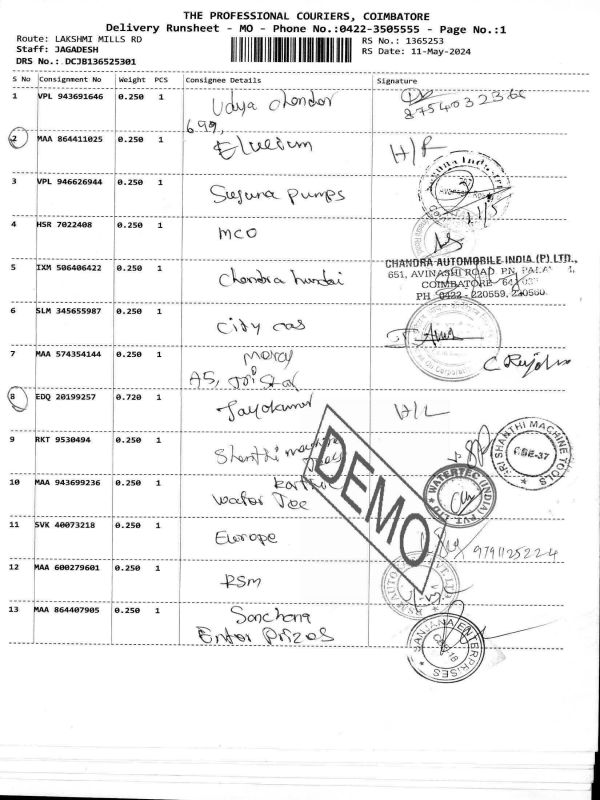 THE PROFESSIONAL COURIERS, COIMBATORE
Delivery Runsheet - MO - Phone No.:0422-3505555 - Page No.:1
Route: LAKSHMI MILLS RD
RS No.: 1365253
Staff: JAGADESH
RS Date: 11-May-2024
DRS No.: DCJB136525301
S No Consignment No Weight PCS Consignee Details Signature
1 VPL 943691646 0.250 1 Udya chandar 8754032366
699,
2 MAA 864411025 0.250 1 H/R
3 VPL 946626944 0.250 1 Suguna pumps
11/5
4 HSR 7022408 0.250 1 MCO
5 IXM 506406422 0.250 1 Chandra hundai
CHANDRA AUTOMOBILE INDIA (P) LTD.,
651, AVINASHI ROAD, P.N.
COIMBATORE - 641 037
PH 0422 - 220559, 220560
6 SLM 345655987 0.250 1 City Gas
7 MAA 574354144 0.250 1 mercy
A5, Tristar
8 EDQ 20199257 0.720 1 Jayakumar H/L
9 RKT 9530494 0.250 1 Shanthi machine
Tools
SRI SHANTHI MACHINE TOOLS
CBE-37
10 MAA 943699236 0.250 1 Karthik
Water Tec
WATERTEC (INDIA) PVT. LTD
11 SVK 40073218 0.250 1 Europe 9791125224
12 MAA 600279601 0.250 1 RSM
13 MAA 864407905 0.250 1 Sanchana
Enter Prizes
SANJANA ENTERPRISES
CBE-18
DEMO